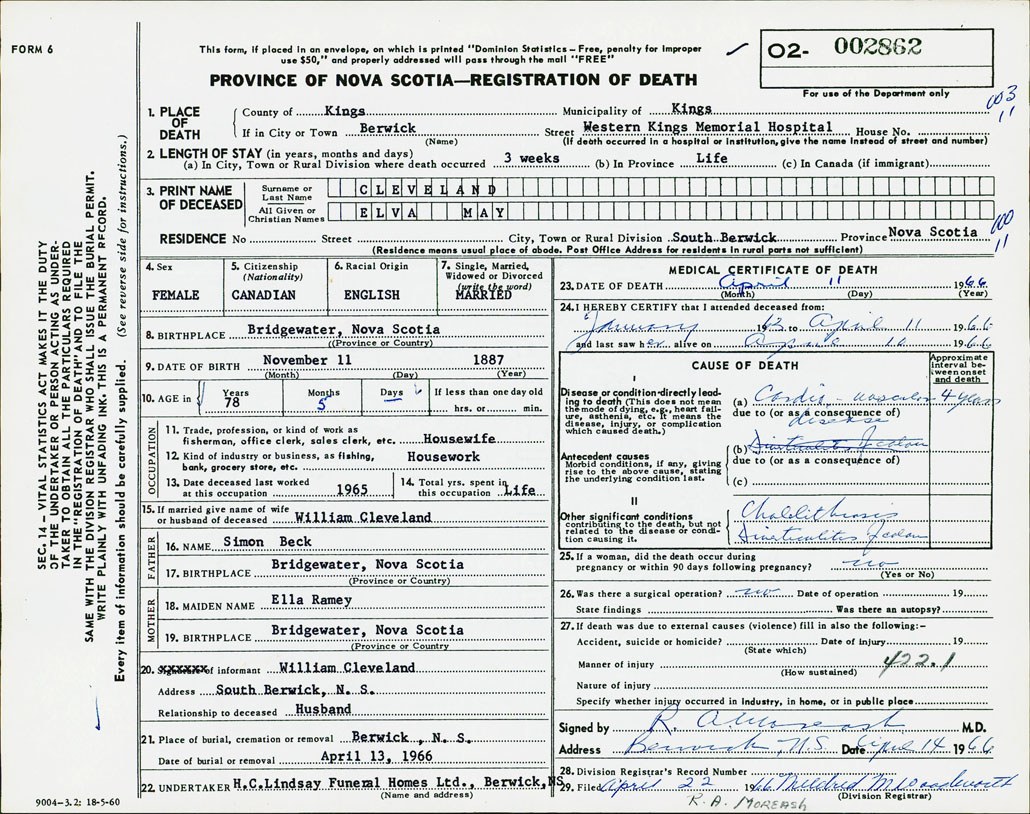 FORM 6
This form, if placed in an envelope, on which is printed "Dominion Statistics – Free, penalty for improper
use $50," and properly addressed will pass through the mail "FREE"
PROVINCE OF NOVA SCOTIA—REGISTRATION OF DEATH
02- 002862
For use of the Department only
003
11
SEC. 14 — VITAL STATISTICS ACT MAKES IT THE DUTY
OF THE UNDERTAKER OR PERSON ACTING AS UNDER-
TAKER TO OBTAIN ALL THE PARTICULARS REQUIRED
IN THE "REGISTRATION OF DEATH" AND TO FILE THE
SAME WITH THE DIVISION REGISTRAR WHO SHALL ISSUE THE BURIAL PERMIT.
WRITE PLAINLY WITH UNFADING INK. THIS IS A PERMANENT RECORD.
Every item of information should be carefully supplied. (See reverse side for instructions.)
1. PLACE OF DEATH
County of Kings Municipality of Kings
If in City or Town Berwick Street Western Kings Memorial Hospital House No.
(Name) (If death occurred in a hospital or institution, give the name instead of street and number)
2. LENGTH OF STAY (in years, months and days)
(a) In City, Town or Rural Division where death occurred 3 weeks (b) In Province Life (c) In Canada (if immigrant)
3. PRINT NAME OF DECEASED
Surname or Last Name CLEVELAND
All Given or Christian Names ELVA MAY
100
11
RESIDENCE No Street City, Town or Rural Division South Berwick Province Nova Scotia
(Residence means usual place of abode. Post Office Address for residents in rural parts not sufficient)
4. Sex FEMALE
5. Citizenship (Nationality) CANADIAN
6. Racial Origin ENGLISH
7. Single, Married, Widowed or Divorced (write the word) MARRIED
8. BIRTHPLACE Bridgewater, Nova Scotia
((Province or Country)
9. DATE OF BIRTH November 11 1887
(Month) (Day) (Year)
10. AGE in Years 78 Months 5 Days If less than one day old hrs. or min.
OCCUPATION
11. Trade, profession, or kind of work as
fisherman, office clerk, sales clerk, etc. Housewife
12. Kind of industry or business, as fishing,
bank, grocery store, etc Housework
13. Date deceased last worked
at this occupation 1965
14. Total yrs. spent in
this occupation Life
15. If married give name of wife
or husband of deceased William Cleveland
FATHER
16. NAME Simon Beck
17. BIRTHPLACE Bridgewater, Nova Scotia
(Province or Country)
MOTHER
18. MAIDEN NAME Ella Ramey
19. BIRTHPLACE Bridgewater, Nova Scotia
(Province or Country
20. Signature of informant William Cleveland
Address South Berwick, N. S.
Relationship to deceased Husband
21. Place of burial, cremation or removal Berwick , N. S.
Date of burial or removal April 13, 1966
22. UNDERTAKER H.C.Lindsay Funeral Homes Ltd., Berwick,NS
(Name and address)
9004–3.2: 18-5-60
MEDICAL CERTIFICATE OF DEATH
23. DATE OF DEATH April 11 1966
(Month) (Day) (Year)
24. I HEREBY CERTIFY that I attended deceased from:
January 1963 to April 11 1966
and last saw her alive on April 10 1966
CAUSE OF DEATH
Approximate interval between onset and death
I
Disease or condition directly lead-
ing to death (This does not mean
the mode of dying, e.g., heart fail-
ure, asthenia, etc. It means the
disease, injury, or complication
which caused death.)
(a) Cardio-vascular 4 years
due to (or as a consequence of)
disease
Antecedent causes
Morbid conditions, if any, giving
rise to the above cause, stating
the underlying condition last.
(b) Diverticulitis of colon
due to (or as a consequence of)
(c)
II
Other significant conditions
contributing to the death, but not
related to the disease or condi-
tion causing it.
Cholelithiasis
Diverticulitis of colon
25. If a woman, did the death occur during
pregnancy or within 90 days following pregnancy? no
(Yes or No)
26. Was there a surgical operation? no Date of operation 19
State findings Was there an autopsy?
27. If death was due to external causes (violence) fill in also the following:–
Accident, suicide or homicide? Date of injury 19
(State which)
Manner of injury 422.1
(How sustained)
Nature of injury
Specify whether injury occurred in industry, in home, or in public place
Signed by R. A. Moreash M.D.
Address Berwick, N.S. Date April 14 1966
28. Division Registrar's Record Number
29. Filed April 22 1966 Mildred M Woodworth
(Division Registrar)
R. A. MOREASH